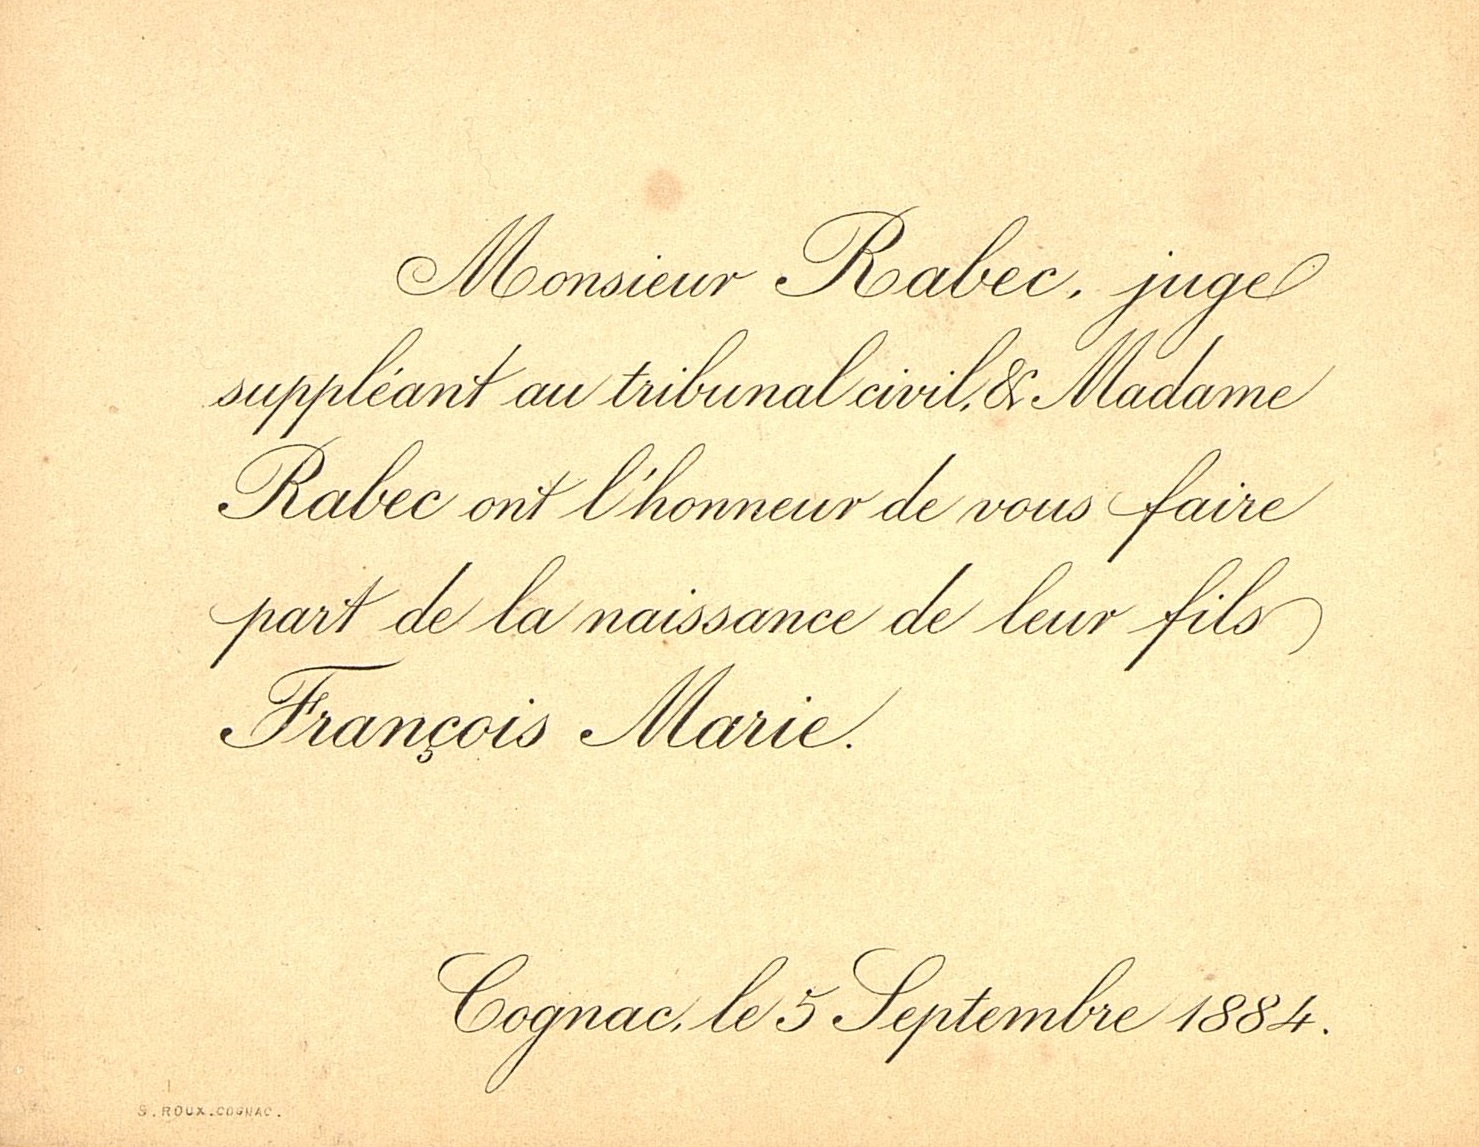 Monsieur Rabec, juge
suppléant au tribunal civil, & Madame
Rabec ont l'honneur de vous faire
part de la naissance de leur fils
François Marie.
Cognac, le 5 Septembre 1884.
S. ROUX. COGNAC.